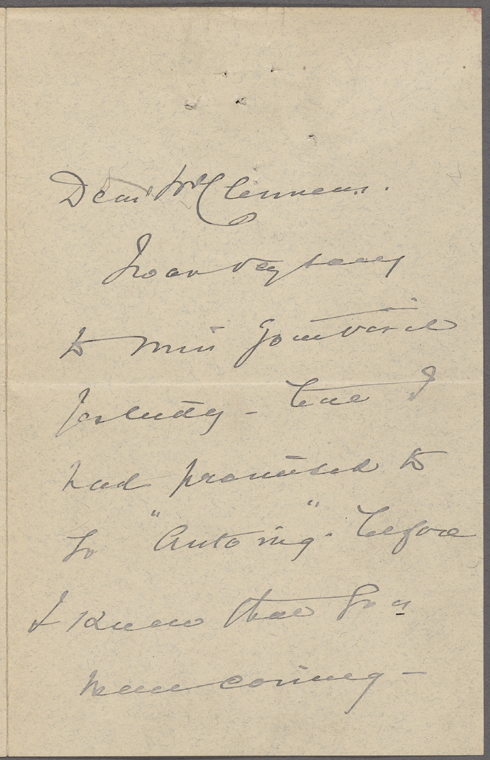 Dear Mr Clemens.
I was very sorry
to miss your visit
yesterday - but I
had promised to
go "Autoing" before
I knew that you
were coming -